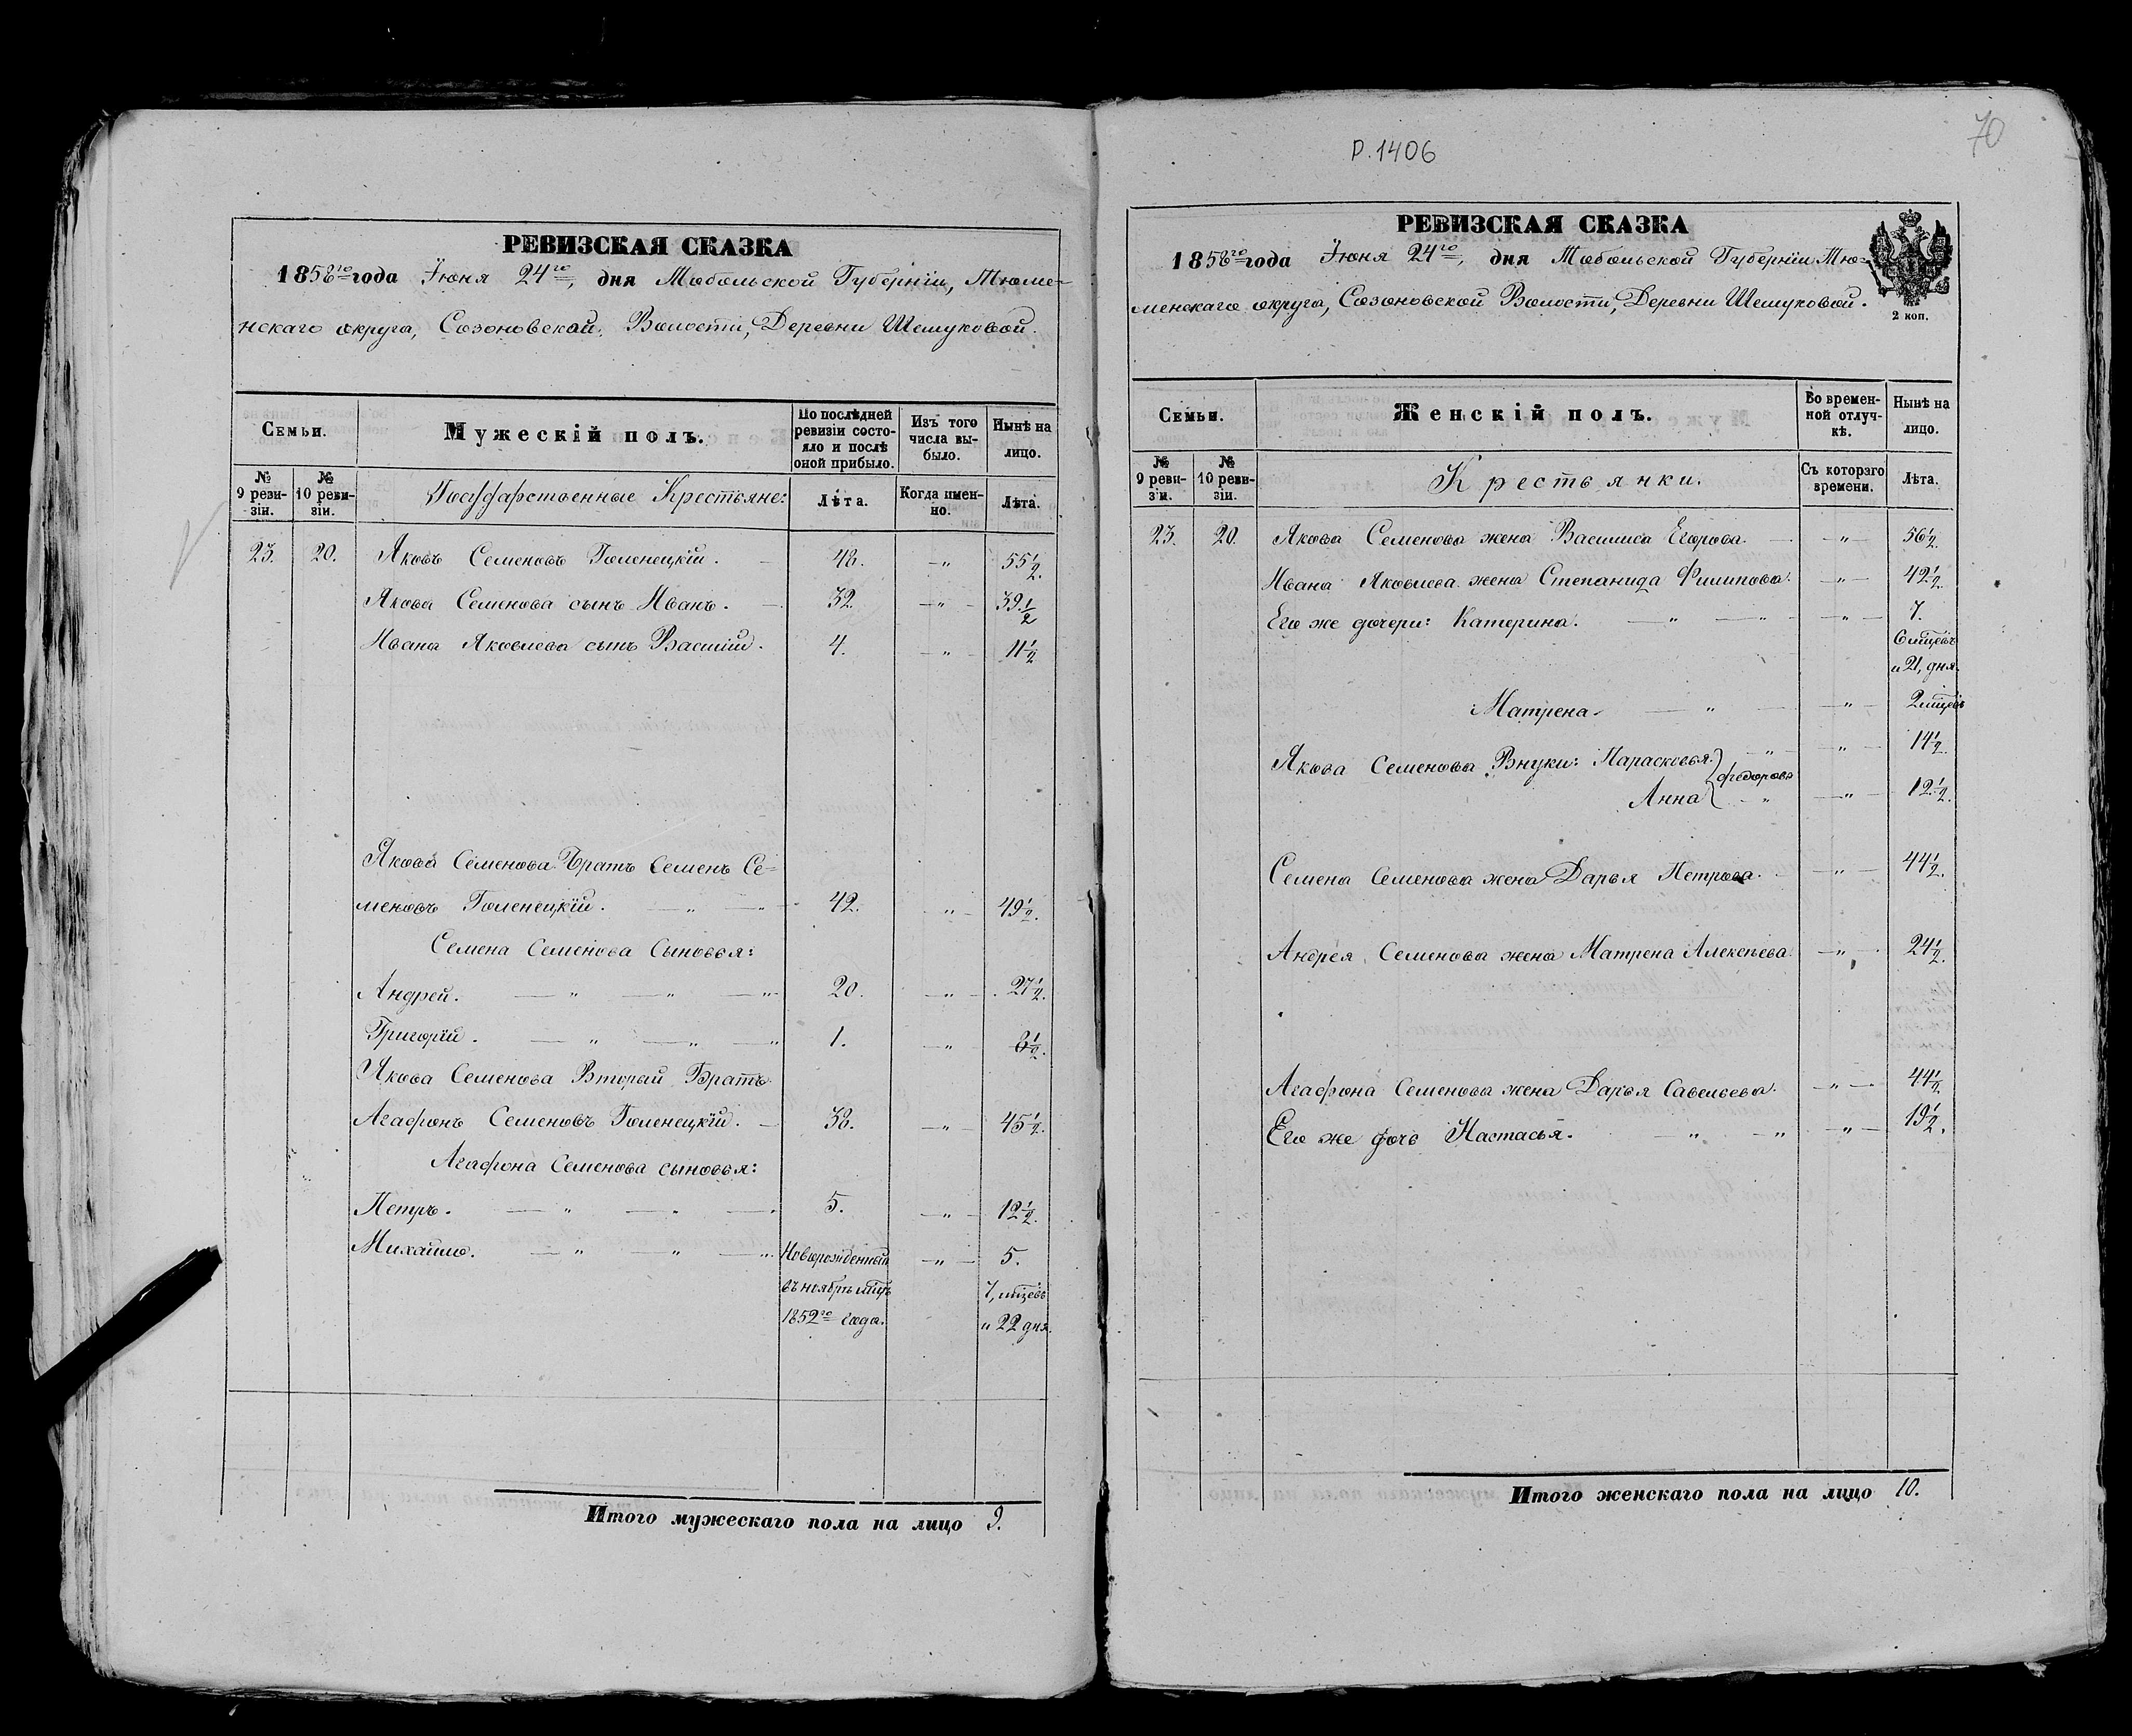 Р.1406
70
РЕВИЗСКАЯ СКАЗКА
1858го года Іюня 24го, дня Тобольской Губерніи, Тюме-
нскаго округа, Созоновской Волости, Деревни Шешуковой.
Семьи.
Мужескій полъ.
По послѣдней ревизіи состояло и послѣ оной прибыло.
Изъ того числа выбыло.
Нынѣ на лицо.
№ 9 ревизіи.
№ 10 ревизіи.
Государственные Крестьяне:
Лѣта.
Когда именно.
Лѣта.
23. 20. Яковъ Семеновъ Голенецкій. — 48. —„ 55½.
Якова Семенова сынъ Иванъ. — 32. —„— 39.½
Ивана Яковлева сынъ Василій. 4. —„— 11½
Якова Семенова Братъ Семенъ Се=
меновъ Голенецкій. —„—„— 42. „— 49½.
Семена Семенова Сыновья:
Андрей. —„—„—„— 20. —„— 27½.
Григорій. —„—„—„ 1. —„— 8½.
Якова Семенова Вторый Братъ
Агафонъ Семеновъ Голенецкій. — 38. —„— 45½.
Агафона Семенова сыновья:
Петръ. —„—„— 5. —„— 12½.
Михайло. —„ „ —„ Новорожденный —„— 5.
въ ноябрѣ мцѣ 7, мцевъ
1852го года. и 22 дня.
Итого мужескаго пола на лицо 9.
РЕВИЗСКАЯ СКАЗКА
1858го года Іюня 24го, дня Тобольской Губерніи Тю=
менскаго округа, Созоновской Волости, Деревни Шешуковой.
2 коп.
Семьи.
Женскій полъ.
Во временной отлучкѣ.
Нынѣ на лицо.
№ 9 ревизіи.
№ 10 ревизіи.
Крестьянки.
Съ котораго времени.
Лѣта.
23. 20. Якова Семенова жена Василиса Егорова. — —„— 56½.
Ивана Яковлева жена Степанида Филипова. —„— 42½.
Его же дочери: Катерина. —„—„— —„— 7.
6 мцевъ
и 21, дня.
Матрена. —„— —„— 2 мцевъ
Якова Семенова Внуки: Парасковья } —„— —„— 14½.
Федорова
Анна } —„ —„— 12½.
Семена Семенова жена Дарья Петрова. — —„— 44½.
Андрея Семенова жена Матрена Алексѣева. —„— 24½.
Агафона Семенова жена Дарья Савельева. —„— 44½
Его же дочь Настасья. —„—„ —„— 19½.
Итого женскаго пола на лицо 10.